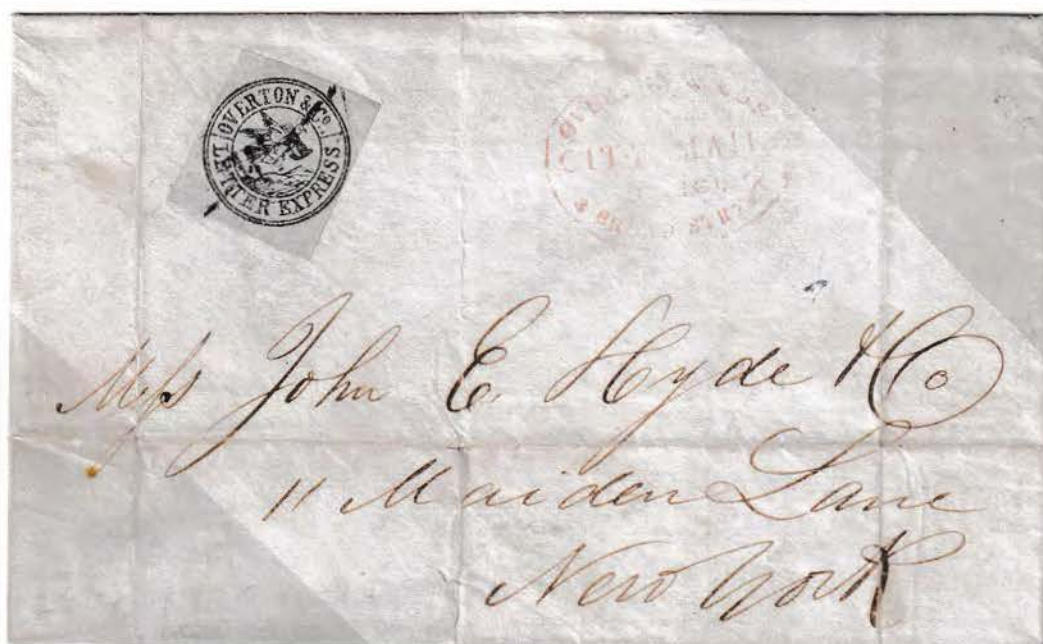 OVERTON & Co.
LETTER EXPRESS
CITY MAIL
Mess John E. Hyde & Co
11 Maiden Lane
New York